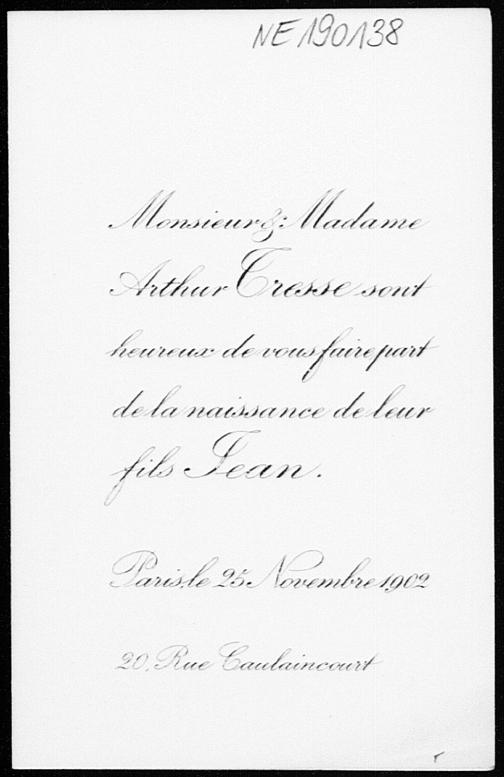 NE190138
Monsieur & Madame
Arthur Tresse sont
heureux de vous faire part
de la naissance de leur
fils Jean.
Paris, le 25 Novembre 1902
20, Rue Caulaincourt